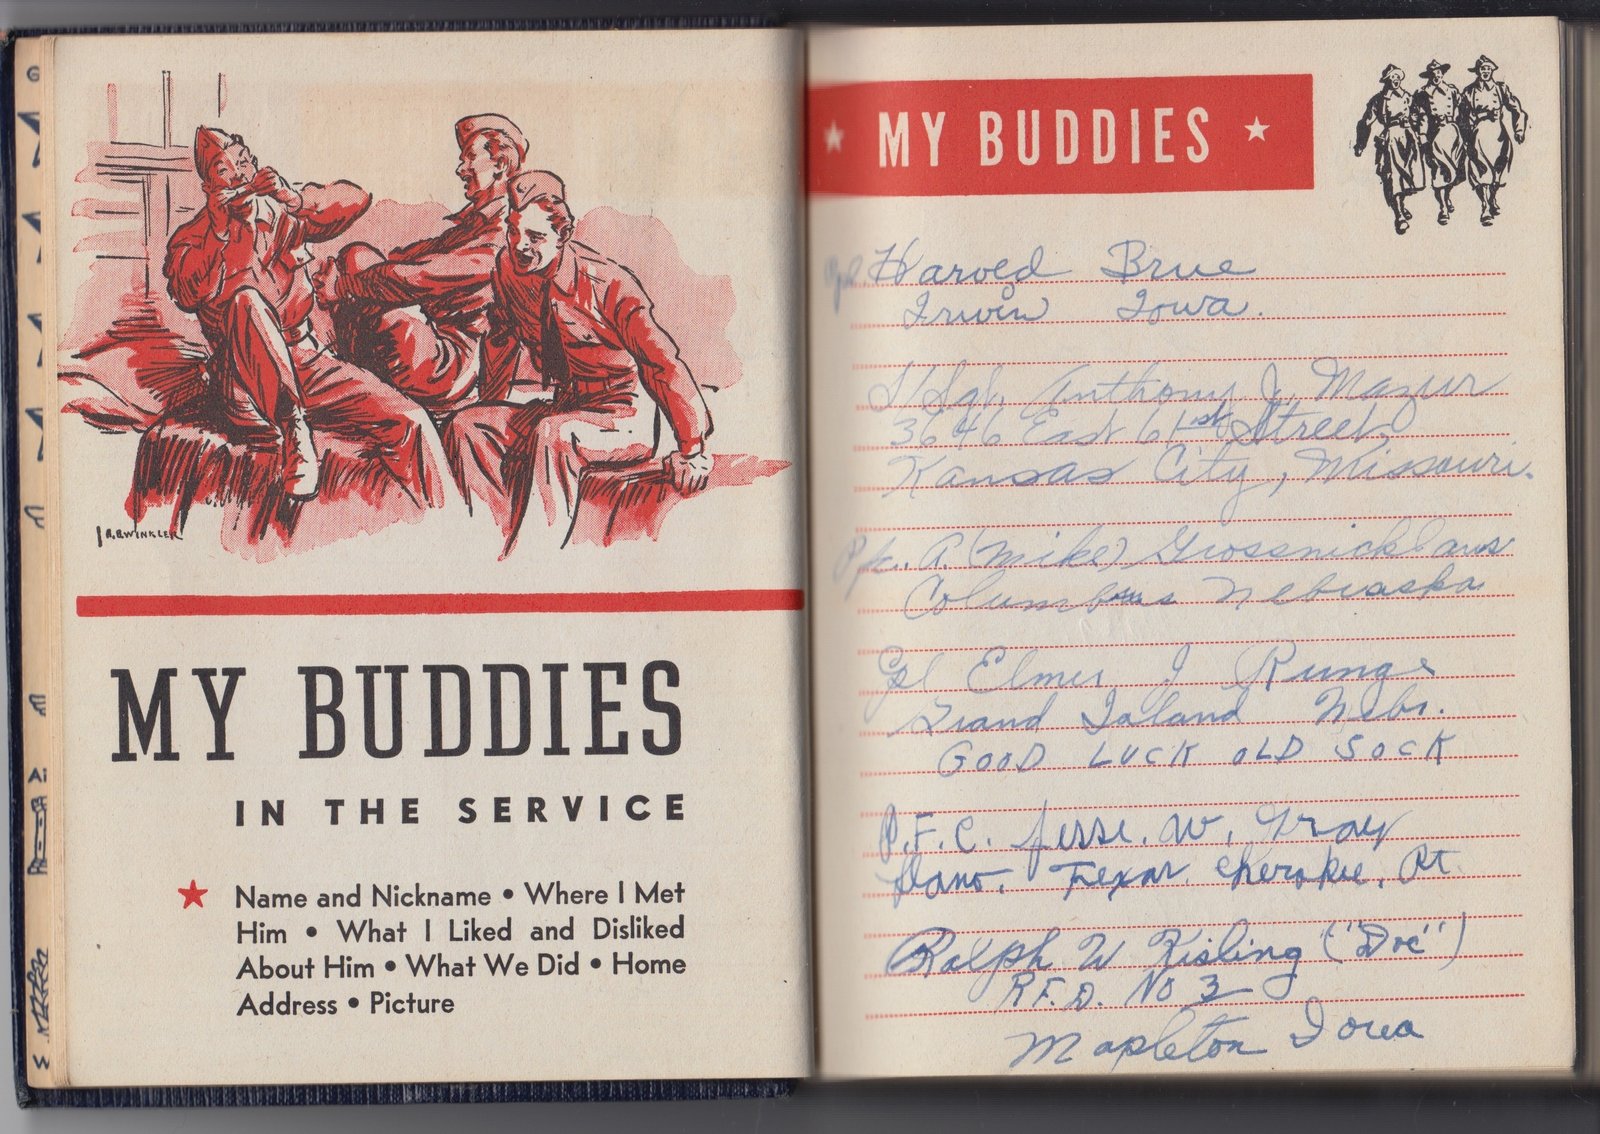 R.B.WINKLER
MY BUDDIES
IN THE SERVICE
★ Name and Nickname • Where I Met
Him • What I Liked and Disliked
About Him • What We Did • Home
Address • Picture
★ MY BUDDIES ★
Harold Brue
Irwin Iowa.
S/Sgt. Anthony J. Mazur
3646 East 61st Street,
Kansas City, Missouri.
Pfc. A. (Mike) Grossnicklaus
Columbus Nebraska
Cpl Elmer J Runge
Grand Island Nebr.
GOOD LUCK OLD SOCK
P.F.C. Jesse. W. Gray
Texas. Cherokee. Rt.
Ralph W Kisling ("Doc")
R.F.D. No 3
Mapleton Iowa